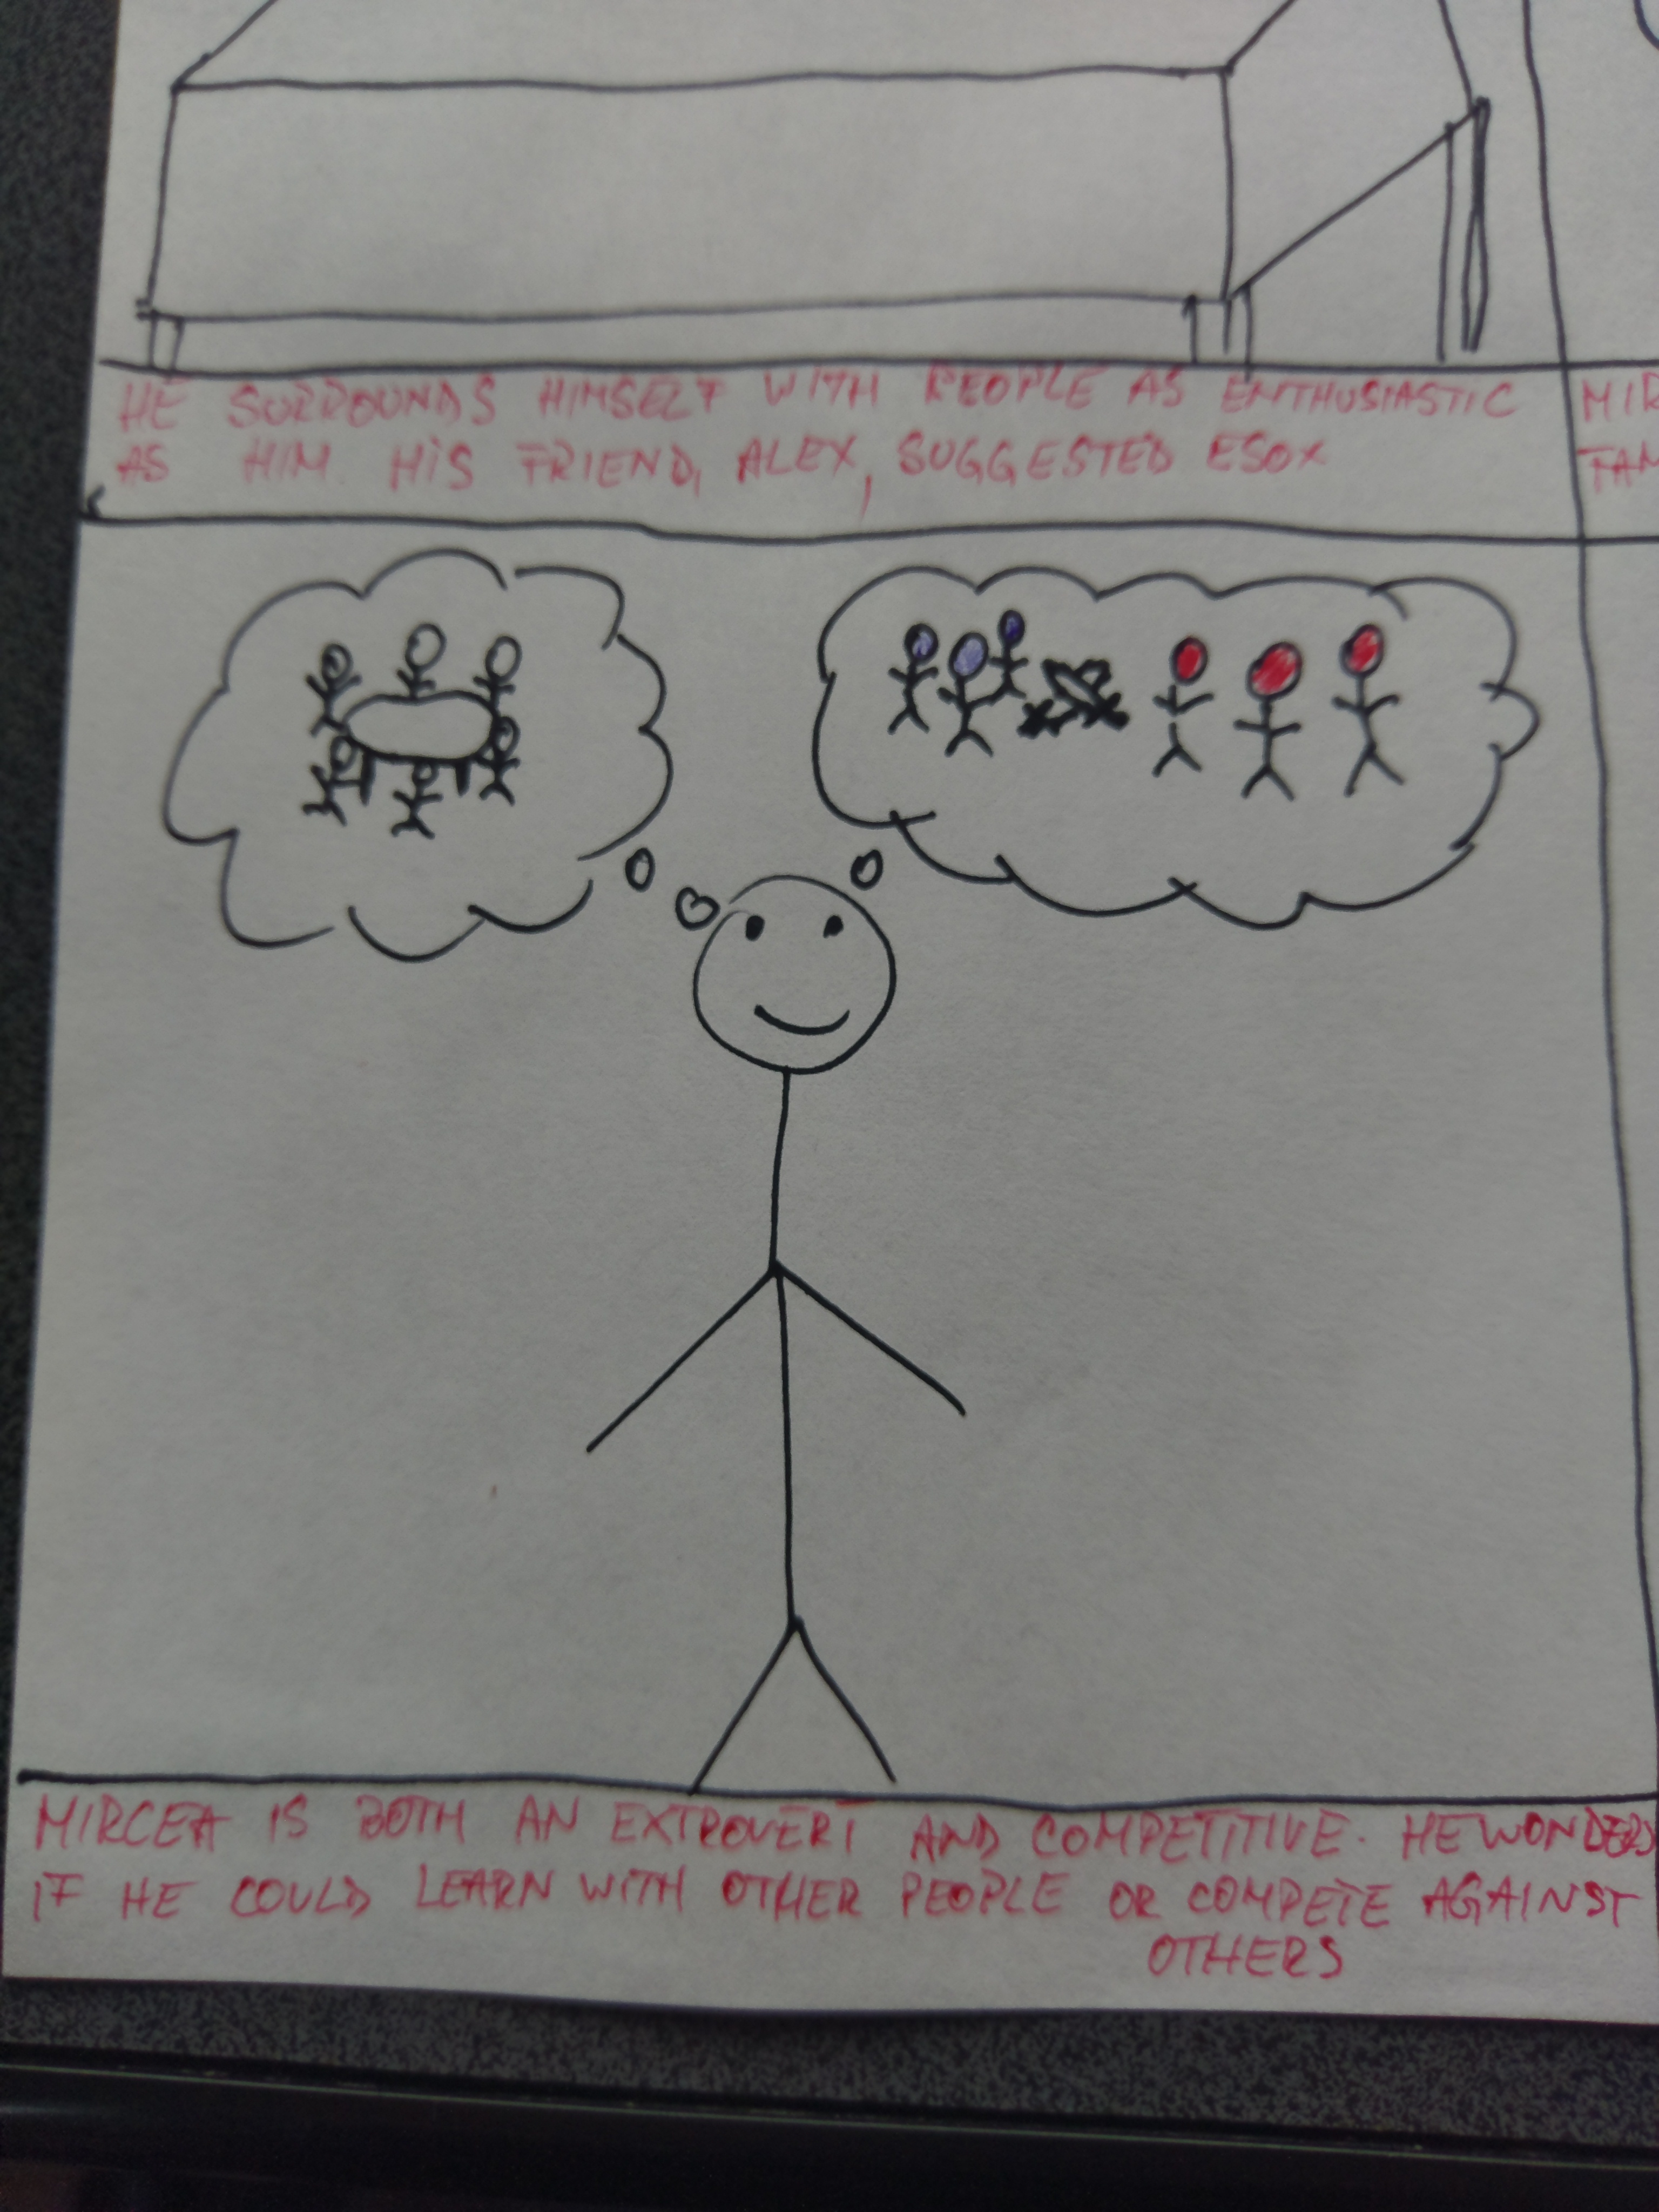 HE SURROUNDS HIMSELF WITH PEOPLE AS ENTHUSIASTIC
AS HIM HIS FRIEND, ALEX, SUGGESTED ESOX
MIR
TAM
MIRCEA IS BOTH AN EXTROVERT AND COMPETITIVE. HE WONDERS
IF HE COULD LEARN WITH OTHER PEOPLE OR COMPETE AGAINST
OTHERS